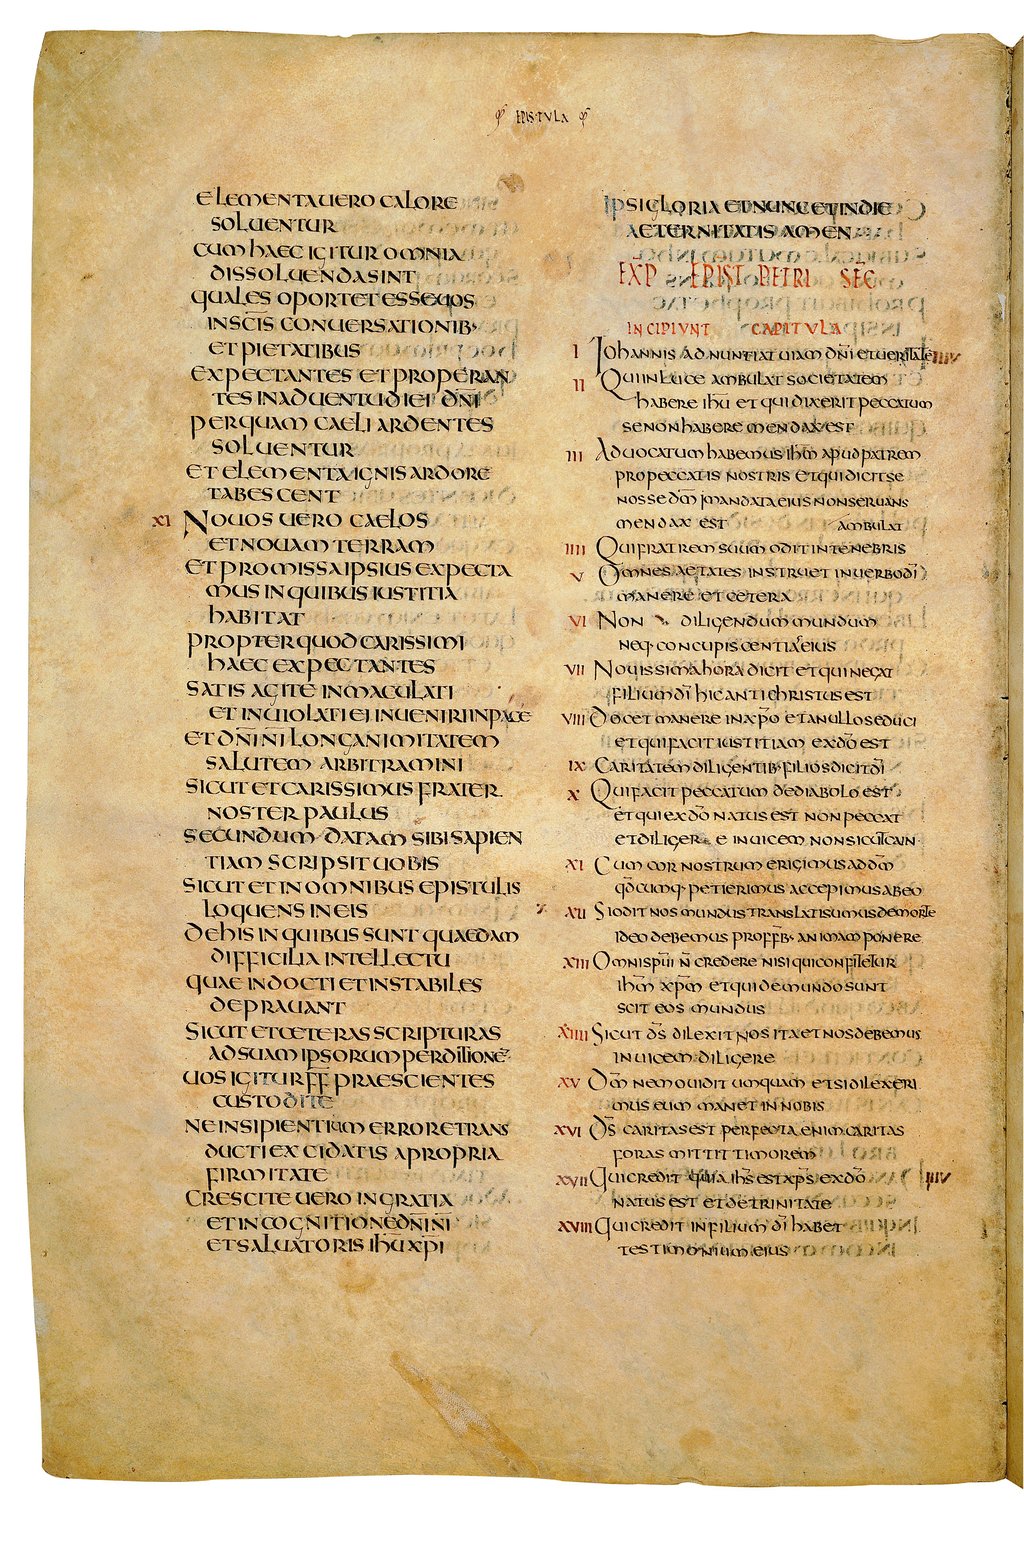 EPISTVLA
ELEMENTA UERO CALORE
SOLUENTUR
CUM HAEC IGITUR OMNIA
DISSOLUENDA SINT
QUALES OPORTET ESSE UOS
IN SCĪS CONUERSATIONIB·
ET PIETATIBUS
EXPECTANTES ET PROPERAN
TES IN ADUENTU DIEI DN̄I
PER QUAM CAELI ARDENTES
SOLUENTUR
ET ELEMENTA IGNIS ARDORE
TABESCENT
XI NOUOS UERO CAELOS
ET NOUAM TERRAM
ET PROMISSA IPSIUS EXPECTA
MUS IN QUIBUS IUSTITIA
HABITAT
PROPTER QUOD CARISSIMI
HAEC EXPECTANTES
SATIS AGITE INMACULATI
ET INUIOLATI EI INUENIRI IN PACE
ET DN̄I NĪ LONGANIMITATEM
SALUTEM ARBITRAMINI
SICUT ET CARISSIMUS FRATER
NOSTER PAULUS
SECUNDUM DATAM SIBI SAPIEN
TIAM SCRIPSIT UOBIS
SICUT ET IN OMNIBUS EPISTULIS
LOQUENS IN EIS
DE HIS IN QUIBUS SUNT QUAEDAM
DIFFICILIA INTELLECTU
QUAE INDOCTI ET INSTABILES
DEPRAUANT
SICUT ET CETERAS SCRIPTURAS
AD SUAM IPSORUM PERDITIONĒ
UOS IGITUR F̄F̄ PRAESCIENTES
CUSTODITE
NE INSIPIENTIUM ERRORE TRANS
DUCTI EXCIDATIS A PROPRIA
FIRMITATE
CRESCITE UERO IN GRATIA
ET IN COGNITIONE DN̄I NĪ
ET SALUATORIS IHŪ XP̄I
IPSI GLORIA ET NUNC ET IN DIE
AETERNITATIS AMEN
EXP̄ EPIST PETRI SĒC
INCIPIUNT CAPITULA
I IOHANNIS ADNUNTIAT UIAM DN̄I ET UERITATE
II QUI IN LUCE AMBULAT SOCIETATEM
HABERE IHŪ ET QUI DIXERIT PECCATUM
SE NON HABERE MENDAX EST
III ADUOCATUM HABEMUS IHM̄ APUD PATREM
PRO PECCATIS NOSTRIS ET QUI DICIT SE
NOSSE DM̄ MANDATA EIUS NON SERUANS
MENDAX EST AMBULAT
IIII QUI FRATREM SUUM ODIT IN TENEBRIS
V OMNES AETATES INSTRUET IN UERBO DĪ
MANERE ET CETERA
VI NON DILIGENDUM MUNDUM
NEQ· CONCUPISCENTIAE EIUS
VII NOUISSIMA HORA DICIT ET QUI NEGAT
FILIUM DĪ HIC ANTICHRISTUS EST
VIII DOCET MANERE IN XP̄O ET A NULLO SEDUCI
ET QUI FACIT IUSTITIAM EX DŌ EST
IX CARITATEM DILIGENTIB· FILIOS DICIT DĪ
X QUI FACIT PECCATUM DE DIABOLO EST
ET QUI EX DŌ NATUS EST NON PECCAT
ET DILIGERE INUICEM NON SICUT CAIN·
XI CUM COR NOSTRUM ERIGIMUS AD DM̄
QD̄CUMQ· PETIERIMUS ACCEPIMUS AB EO
XII SI ODIT NOS MUNDUS TRANSLATI SUMUS DE MORTE
IDEO DEBEMUS PRO FF̄B· ANIMAM PONERE
XIII OMNI SPŪI N̄ CREDERE NISI QUI CONFITETUR
IHM̄ XPM̄ ET QUI DE MUNDO SUNT
SCIT EOS MUNDUS
XIIII SICUT DS̄ DILEXIT NOS ITA ET NOS DEBEMUS
INUICEM DILIGERE
XV DM̄ NEMO UIDIT UMQUAM ET SI DILEXERI
MUS EUM MANET IN NOBIS
XVI DS̄ CARITAS EST PERFECTA ENIM CARITAS
FORAS MITTIT TIMOREM
XVII QUI CREDIT QUIA IHS̄ EST XPS̄ EX DŌ
NATUS EST ET DE TRINITATE
XVIII QUI CREDIT IN FILIUM DĪ HABET
TESTIMONIUM EIUS